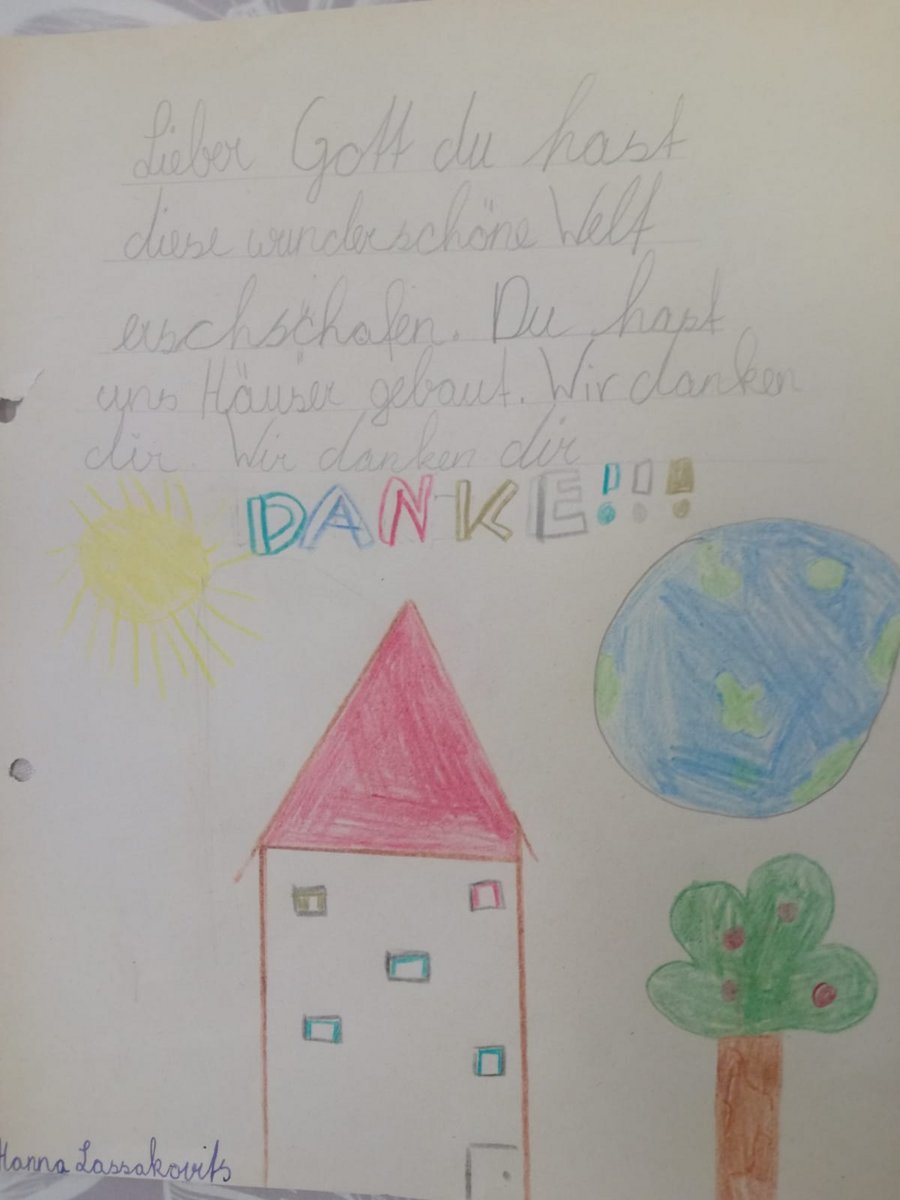 Lieber Gott du hast
diese wunderschöne Welt
erschschafen. Du hast
uns Häuser gebaut. Wir danken
dir. Wir danken dir
DANKE!!!
Hanna Lassakovits